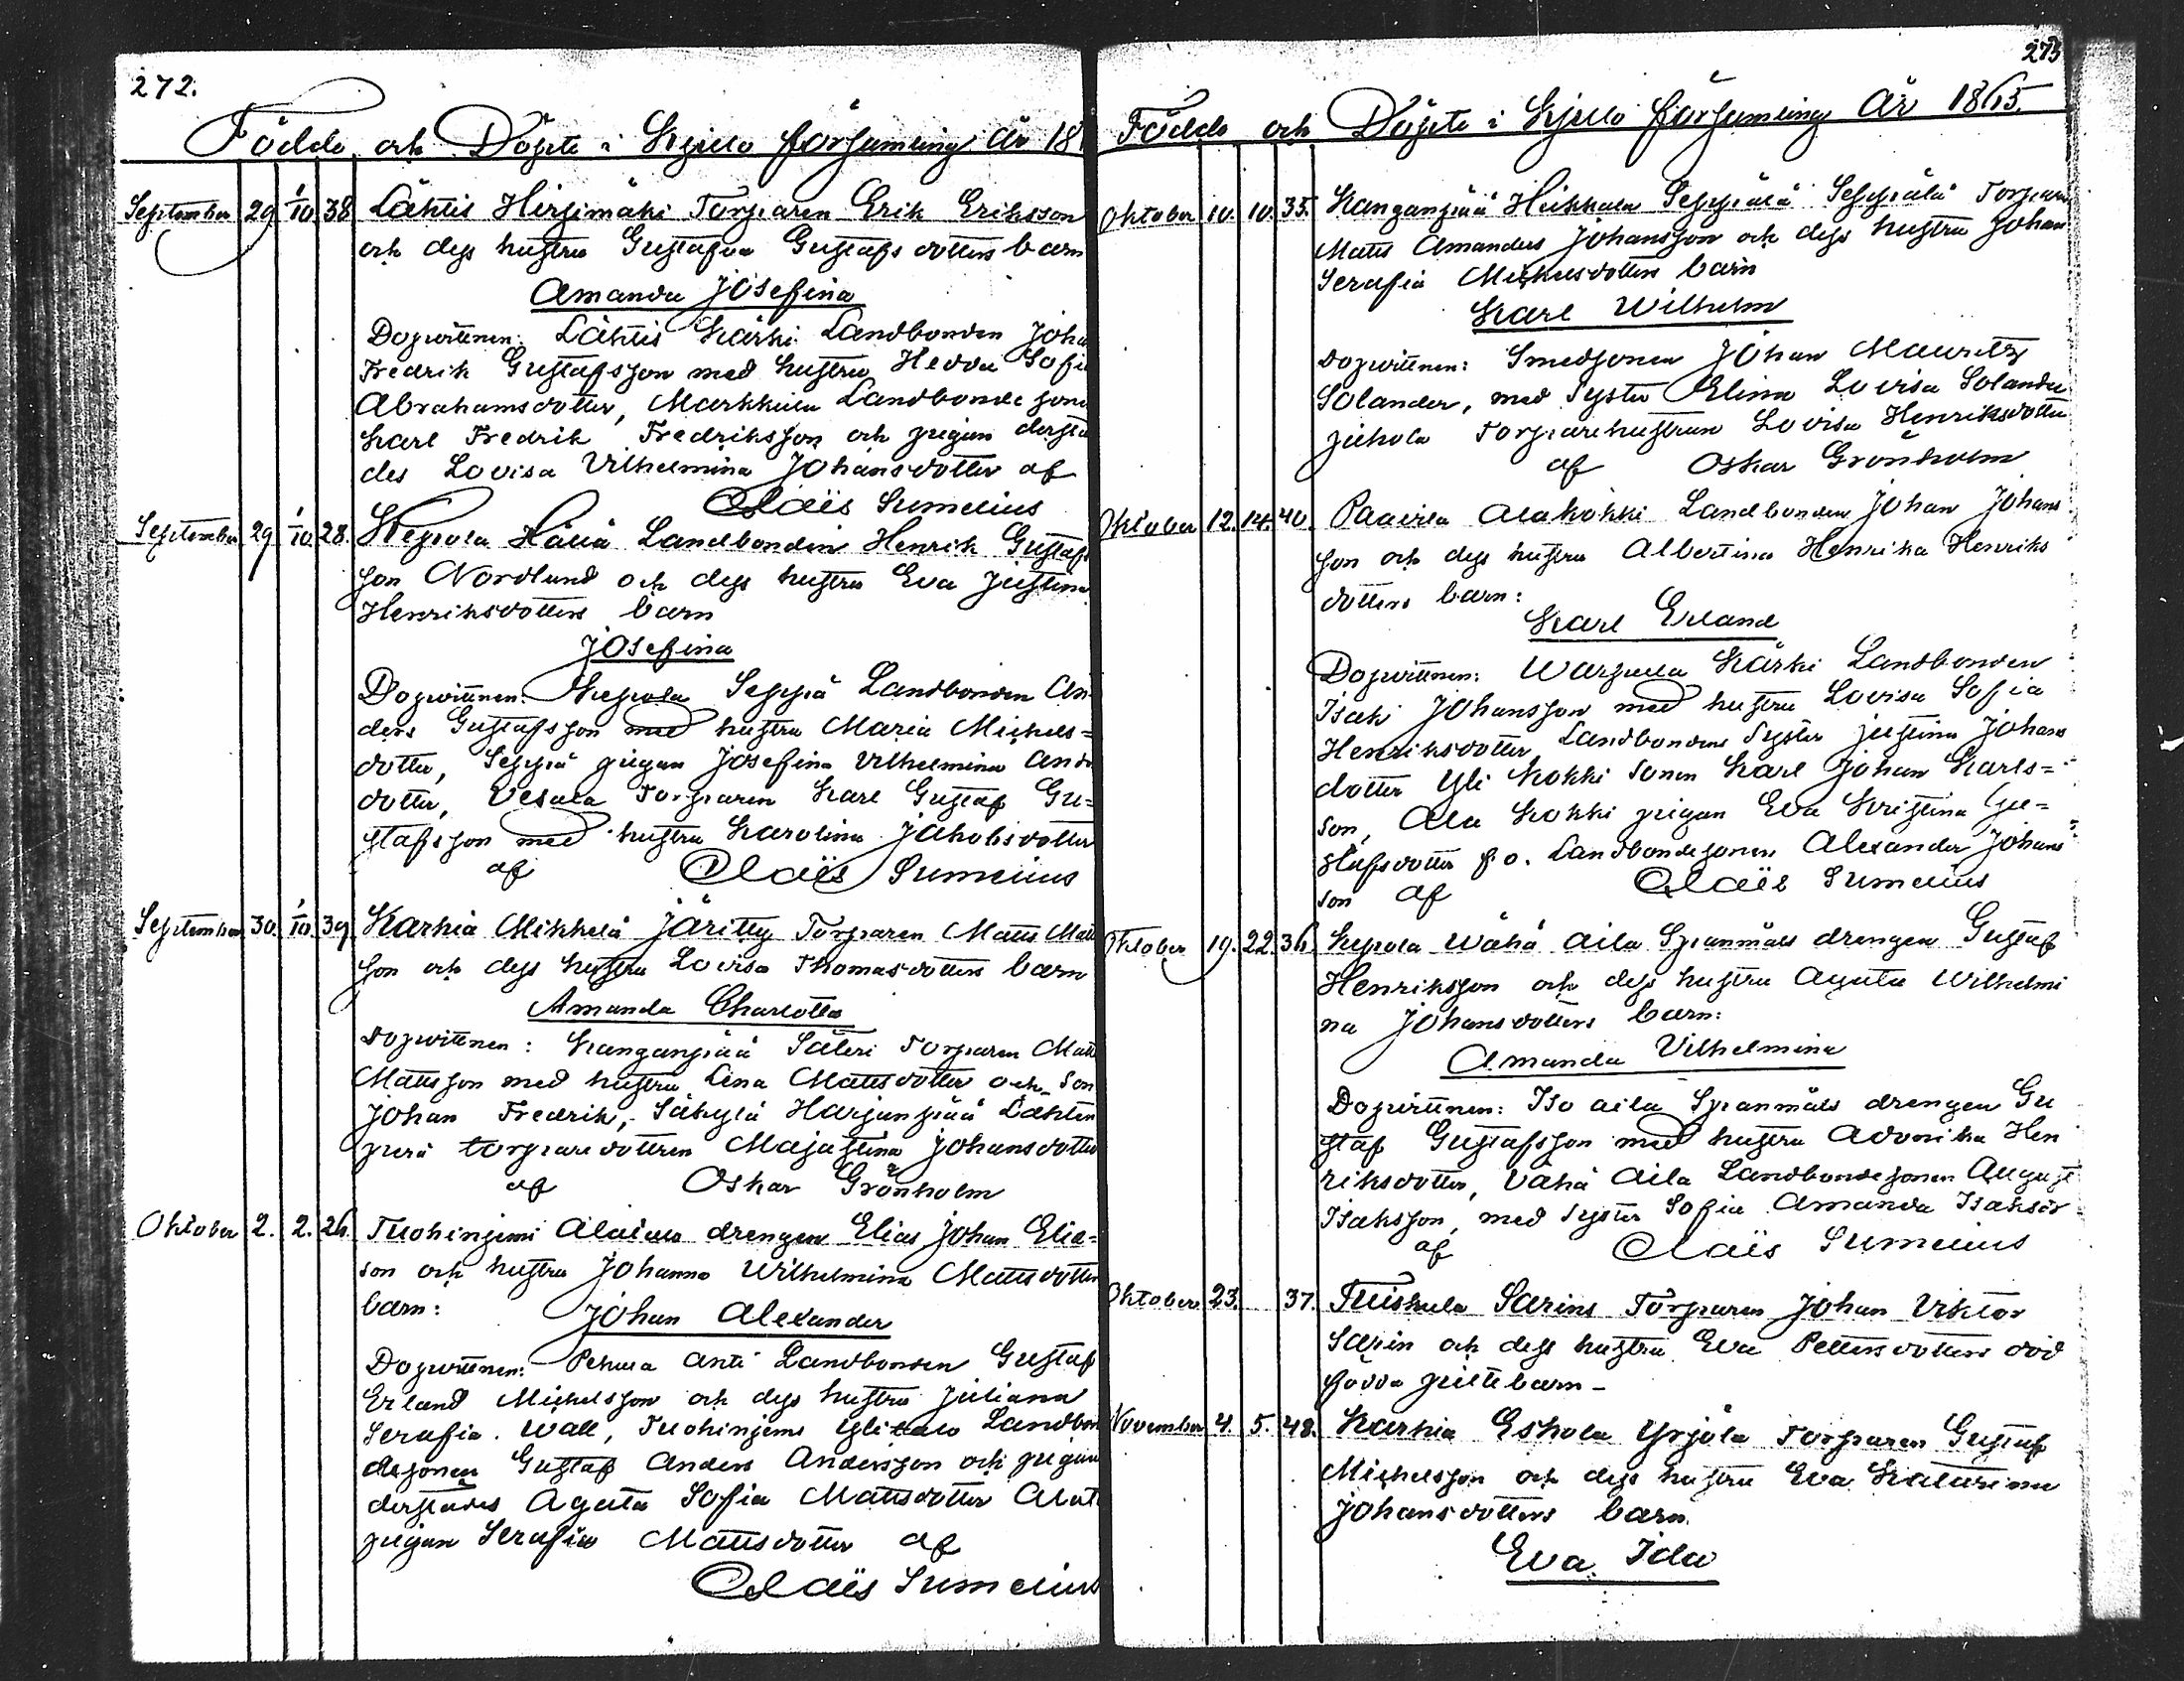 272.
Födde och Döpte i Kjulo församling År 18
September 29 1/10. 38 Lähtis Hirsimäki Torparen Erik Eriksson
och dess hustru Gustafva Gustafs dotters barn
Amanda Josefina
Dopvittnen: Lähtis Kärki Landbonden Joha
Fredrik Gustafsson med hustru Hedda Sofia
Abrahamsdotter, Markkula Landbonde sone
Karl Fredrik Fredriksson och pigan derstä
des Lovisa Vilhelmina Johansdotter af
Claës Sumelius
September 29 1/10. 28. Kepola Landbonden Henrik Gustafs
son Nordlund och dess hustru Eva Justina
Henriksdotters barn
Josefina
Dopvittnen: Kepola Seppä Landbonden An
ders Gustafsson med hustru Maria Michels=
dotter, Seppä pigan Josefina Vilhelmina Andr
dotter, Vesala Torparen Karl Gustaf Gu=
stafsson med hustru Karolina Jakobsdotter
af Claës Sumelius
September 30. 1/10. 39. Karhia Mikkelä Torparen Matts Matt
son och dess hustru Lovisa Thomasdotters barn
Amanda Charlotta
Dopvittnen: Kanganpää Säteri Torparen Matt
Mattsson med hustru Lena Mattsdotter och son
Johan Fredrik, Säkylä Harjunpää Lähten
perä torpare dottren Majastina Johansdotter
af Oskar Grönholm
Oktober 2. 2. 26. Tuohiniemi Alatalo drengen Elias Johan Elia=
son och hustru Johanna Wilhelmina Mattsdotters
barn: Johan Alexander
Dopvittnen: Pehula Anti Landbonden Gustaf
Erland Michelsson och dess hustru Juliana
Serafia Wall, Tuohiniemi Ylitalo Landbon
desonen Gustaf Anders Andersson och pigan
derstädes Agata Sofia Mattsdotter Alat
pigan Serafia Mattsdotter af
Claës Sumelius
273
Födde och Döpte i Kjulo församling År 1865.
Oktober 10. 10. 35. Kanganpää Heikkala Seppälä Torparen
Matts Amandus Johansson och dess hustru Johan
Serafia Michelsdotters barn
Karl Wilhelm
Dopvittnen: Smedsonen Johan Mauritz
Solander, med syster Elina Lovisa Solander
Torparehustrun Lovisa Henriksdotter
af Oskar Grönholm
Oktober 12. 14. 40. Paavila Alakokki Landbonden Johan Johans
son och dess hustru Albertina Henrika Henriks
dotters barn:
Karl Erland
Dopvittnen: Warpula Kärki Landbonden
Isak Johansson med hustru Lovisa Sofia
Henriksdotter Landbondens syster Justina Johans
dotter Yli Kokki sonen Karl Johan Karls=
son, Ala Kokki pigan Eva Kristina Gu=
stafsdotter f.o. Landbondesonen Alexander Johans
son af Claës Sumelius
Oktober 19. 22. 36. Kepola Wähä Aila Spanmåls drengen Gustaf
Henriksson och dess hustru Agata Wilhelmi
na Johansdotters barn:
Amanda Vilhelmina
Dopvittnen: Iso Aila Spanmåls drengen Gu
staf Gustafsson med hustru Adonika Hen
riksdotter, Vähä Aila Landbondesonen August
Isaksson, med syster Sofia Amanda Isaksdr
af Claës Sumelius
Oktober 23. 37. Tuiskula Sarins Torparen Johan Viktor
Sarin och dess hustru Eva Pettersdotters död
födda piltebarn -
November 4. 5. 48. Karhia Eskola Yrjölä Torparen Gustaf
Michelsson och dess hustru Eva Katarina
Johansdotters barn.
Eva Ida